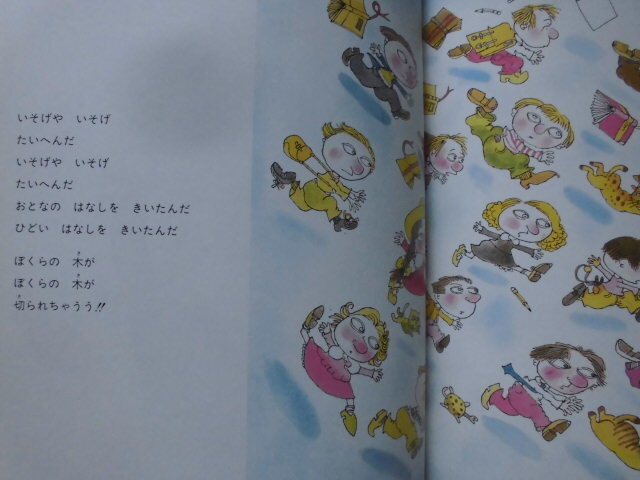 いそげや　いそげ
たいへんだ
いそげや　いそげ
たいへんだ
おとなの　はなしを　きいたんだ
ひどい　はなしを　きいたんだ
ぼくらの　木が
ぼくらの　木が
切られちゃうう!!